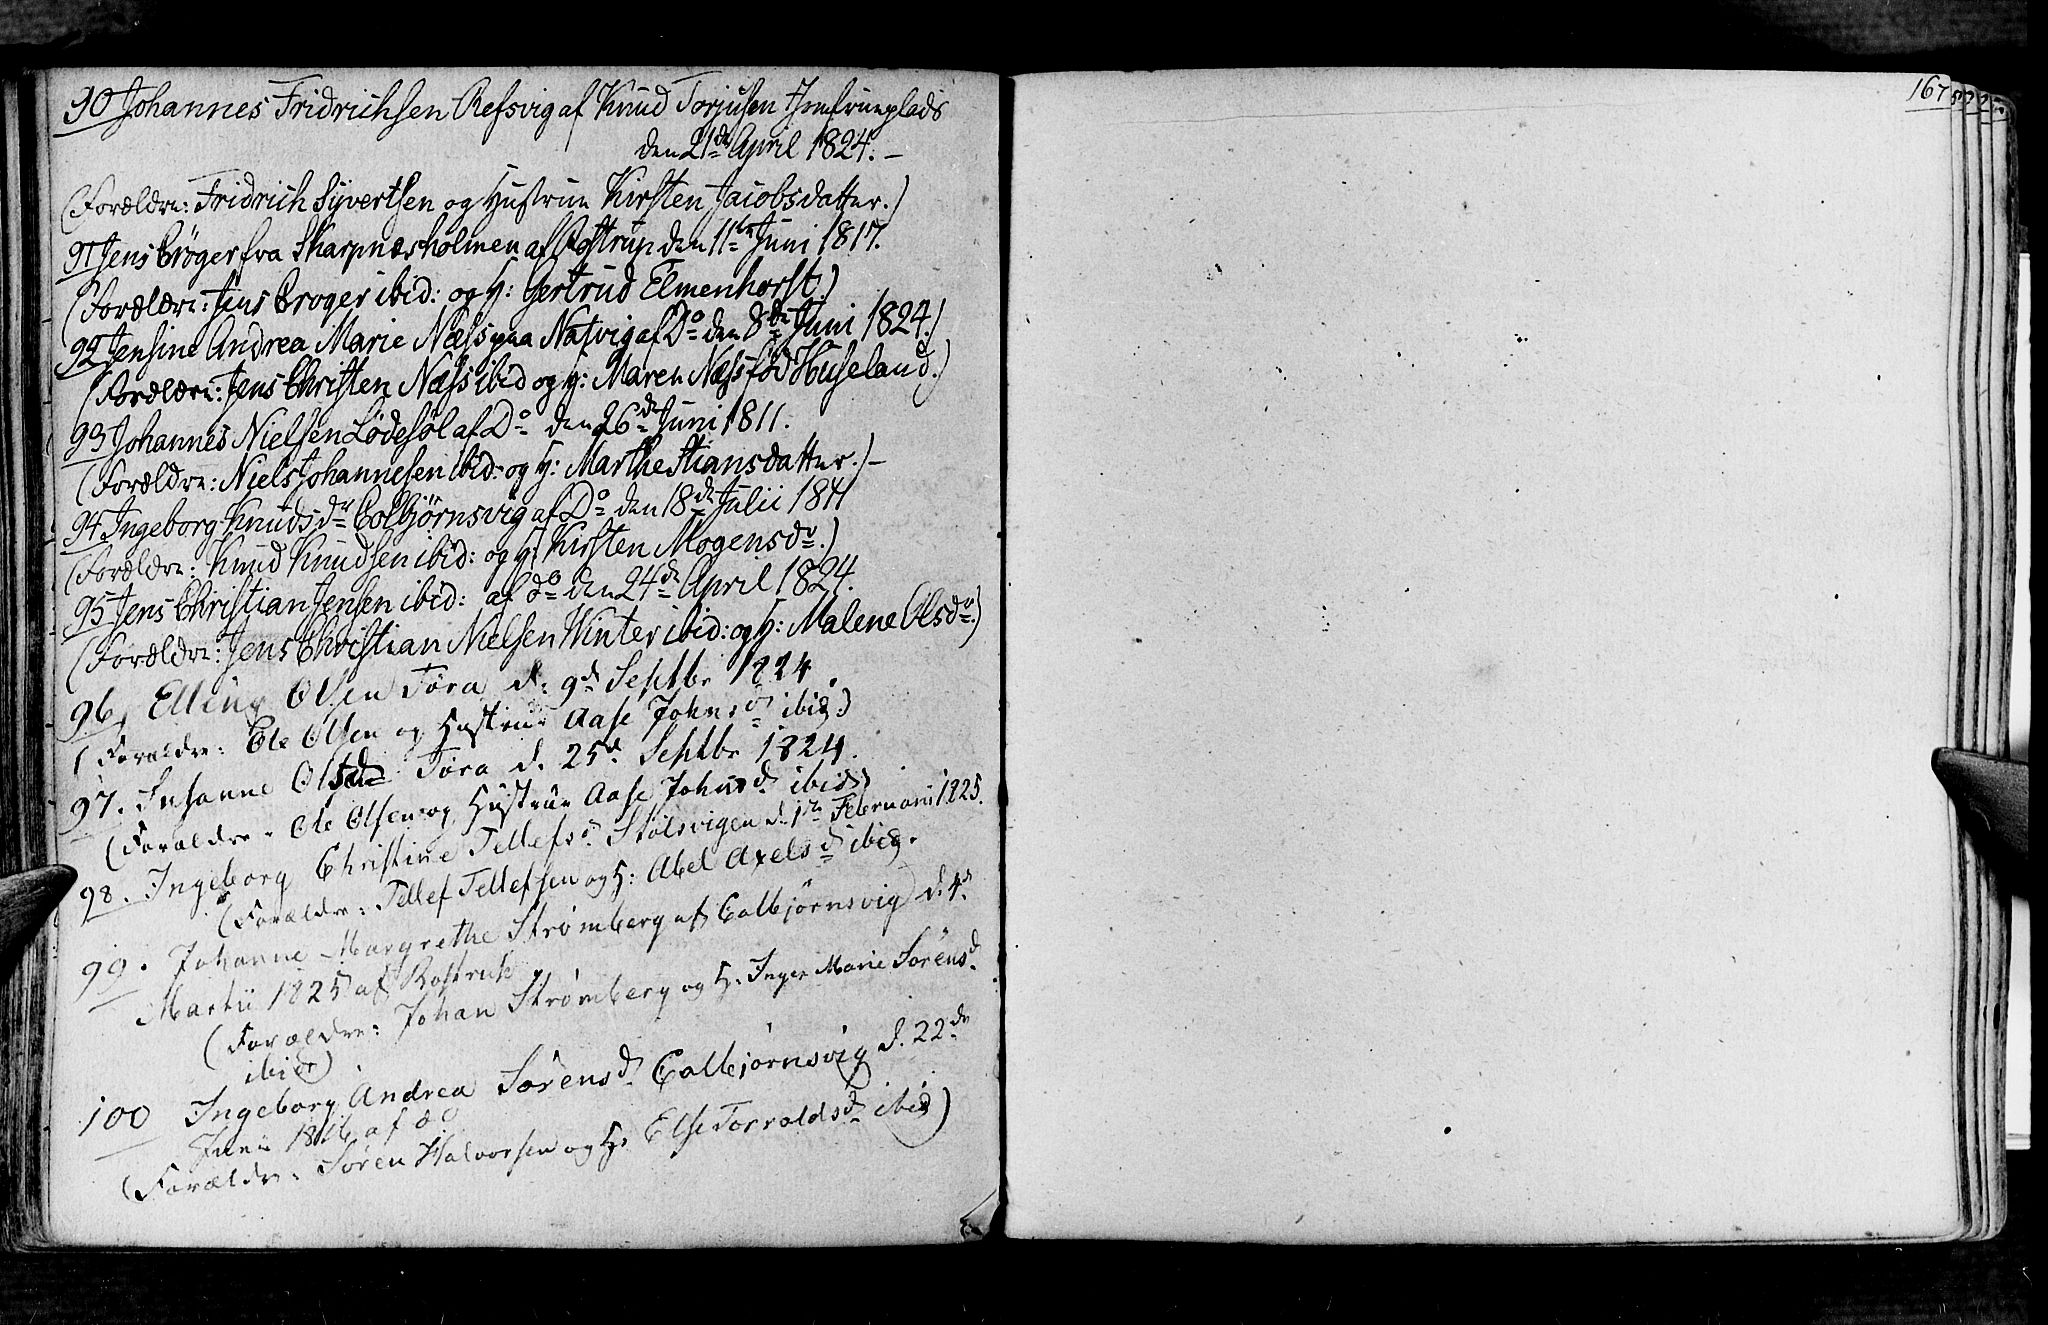 90 Johannes Fridrichsen Refsvig af Knud Torjusen Jomfrueplads
den 21de April 1824. –
(Forældre: Fridrich Syvertsen og Hustrue Kirsten Jacobsdatter.)
91 Jens Brøger fra Skarpnæsholmen af Rostrup den 11te Juni 1817.
(Forældre: Jens Broger ibid: og H: Gertrud Elmenhorst.)
92 Jensine Andrea Marie Næss paa Natvig af Do den 8de Juni 1824.)
(Forældre: Jens Christen Næss ibid og H: Maren Næss fød Huseland.)
93 Johannes Nielsen Lødesøl af Do den 26de Juni 1811.
(Forældre: Niels Johannesen ibid: og H: Marthe Stiansdatter.) –
94 Ingeborg Knudsdr Colbjørnsvig af Do den 18de Julii 1811
(Forældre: Knud Knudsen ibid: og H: Kirsten Mogensdr.)
95 Jens Christian Jensen ibid: af do den 24de April 1824.
(Forældre: Jens Christian Nielsen Winter ibid: og H: Malene Olsdr.)
96, Elling Olsen Töra d: 9d Septbr 1824.
(Forældre: Ole Olsen og Hustrue Aase Johnsd ibid.)
97. Susanne Olsd Töra d. 25d Septbr 1824.
(Forældre: Ole Olsen og Hustrue Aase Johnsd ibid)
98. Ingeborg Christine Tellefsd. Stølsvigen d. 1te Februarii 1825.
(Forældre: Tellef Tellefsen og H: Abel Axelsd ibid.
99. Johanne Margrethe Strømberg af Colbjørnsvig d. 4d
Martii 1825 af Rostrup
(Forældre: Johan Strømberg og H. Inger Marie Sörensd.
ibid)
100 Ingeborg Andrea Sørensd. Colbjørnsvig d. 22de
Junii 1816 af do
(Forældre. Søren Halvorsen og H. Else Torvaldsd ibid)
167